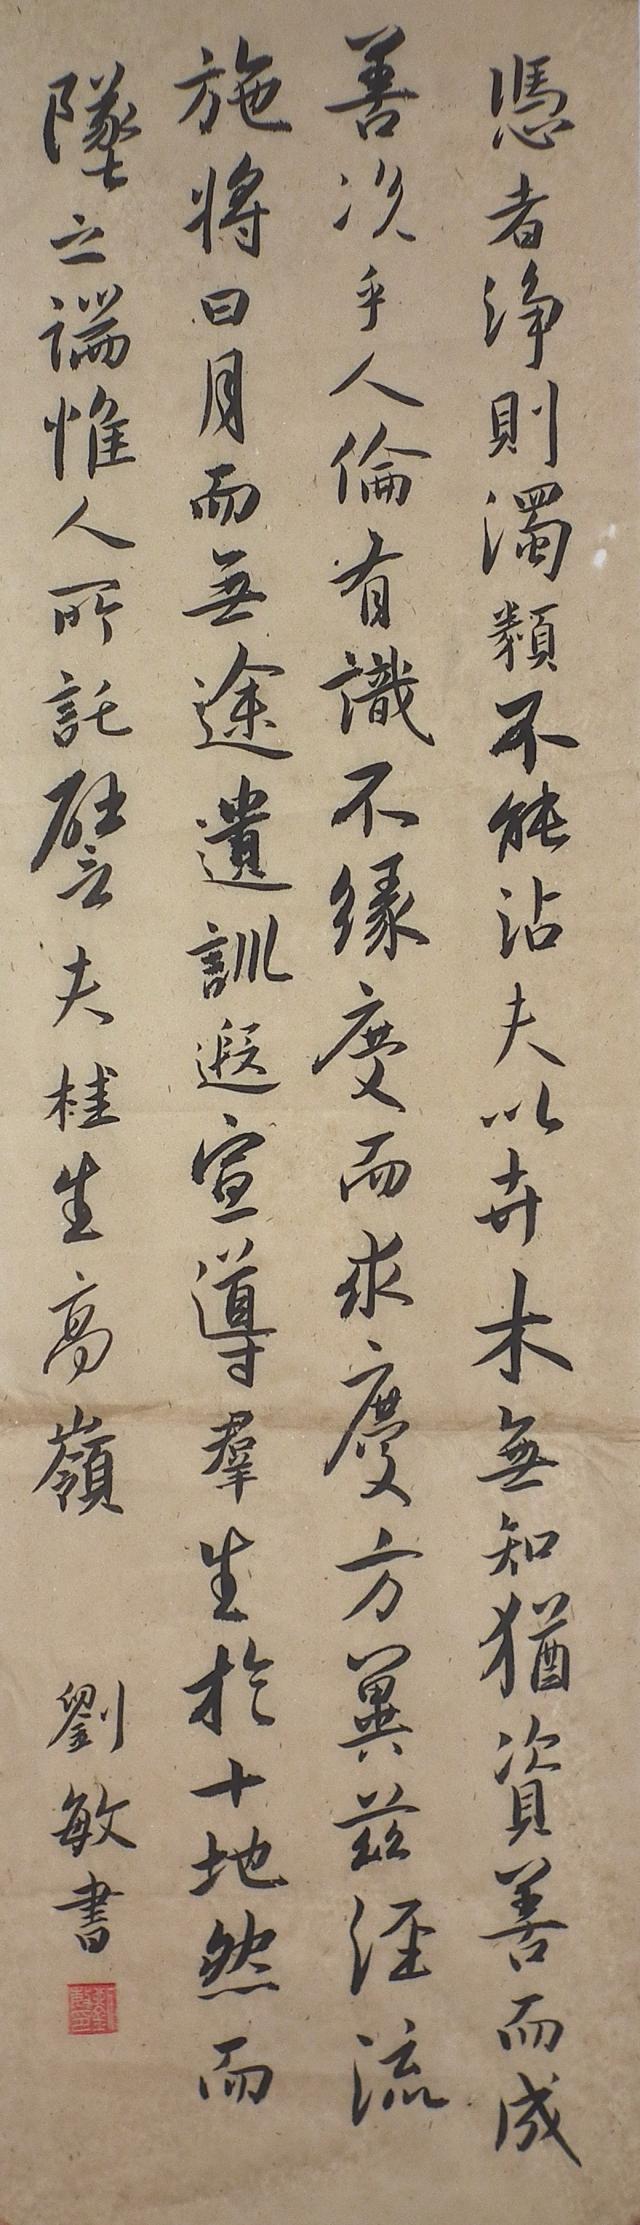 憑者淨則濁類不能沾夫以卉木無知猶資善而成
善次乎人倫有識不緣慶而求慶方冀茲經流
施將日月而無途遺訓遐宣導羣生於十地然而
墜之端惟人所託譬夫桂生高嶺
劉敏書